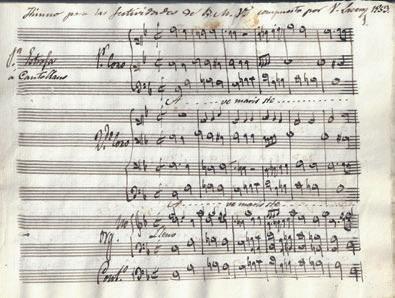 Himno para las festividades de compuesto por V. 1853
1ª Estrofa 1er Coro
a Cantollano
A - - - - - ve maris ste - - - - -
2º Coro
A - - - - - ve maris ste - - - - -
Org.
Lleno
Contº